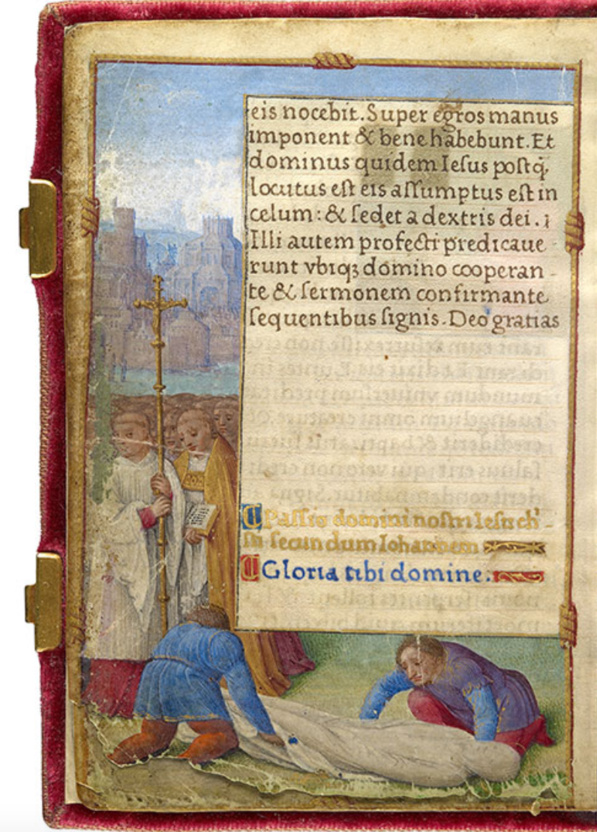 eis nocebit. Super egros manus
imponent & bene habebunt. Et
dominus quidem Iesus postq̃
locutus est eis assumptus est in
celum: & sedet a dextris dei. ;
Illi autem profecti predicaue-
runt vbiqꝫ domino cooperan-
te & sermonem confirmante
sequentibus signis. Deo gratias
Passio domini nostri Iesu ch'-
sti secundum Iohannem
Gloria tibi domine.